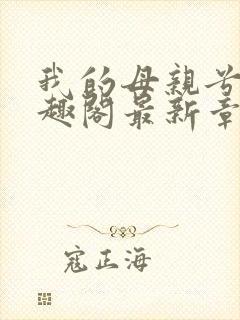 我的母親
趣閣最新章
寇正海